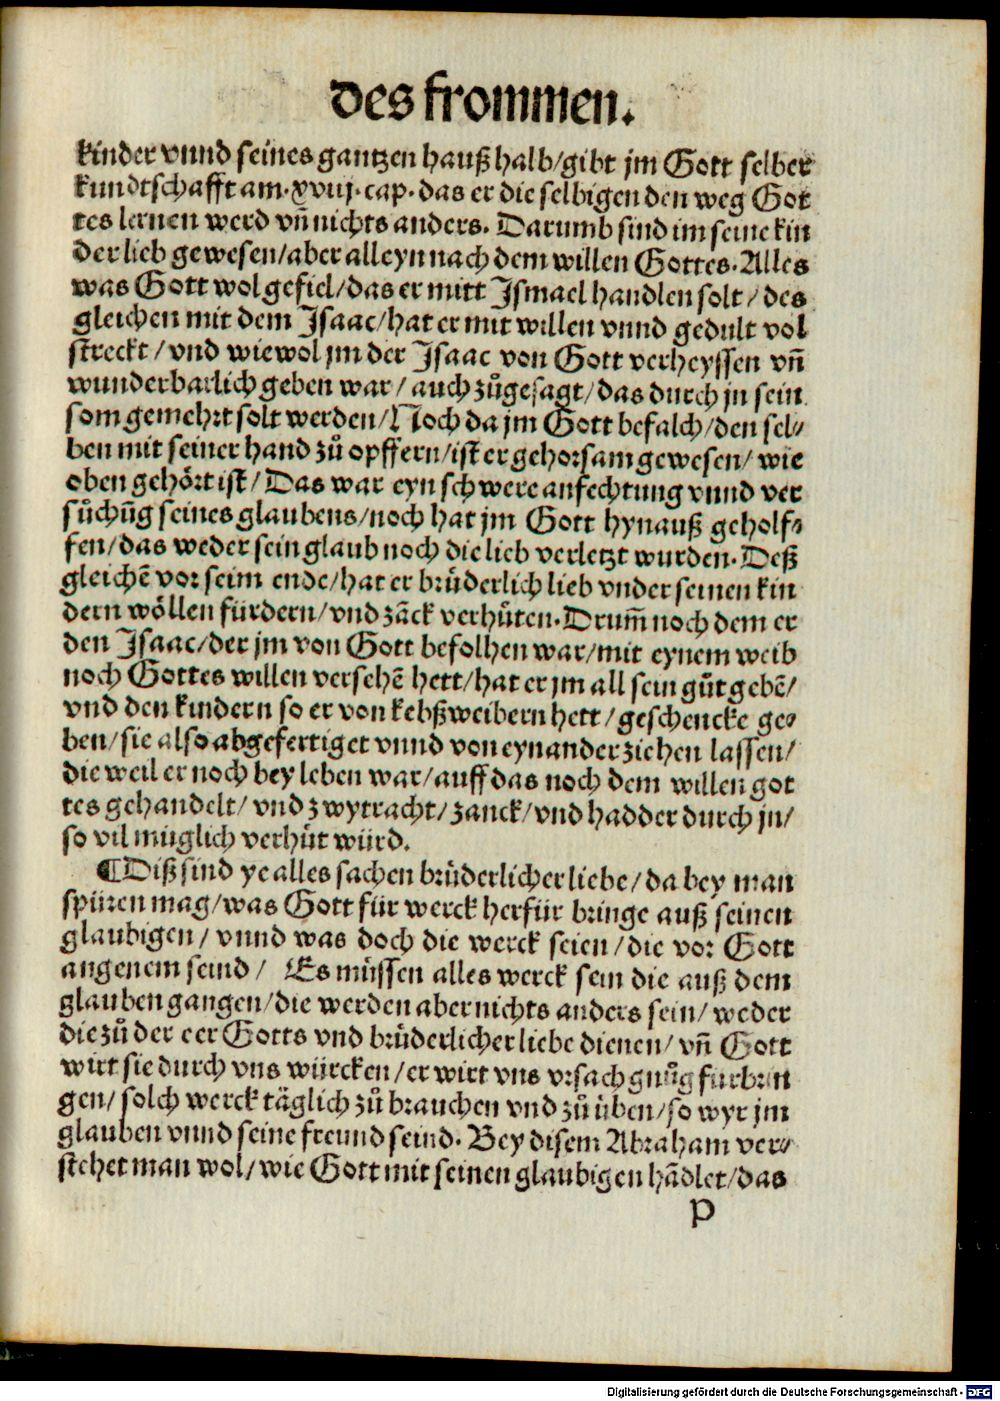 des frommen.
kinder vnnd seines gantzen hauß halb/gibt jm Gott selber
kundtschafft am.xviij.cap.das er die selbigen den weg Got
tes lernen werd vñ nichts anders. Darumb sind im seine kin
der lieb gewesen/aber alleyn nach dem willen Gottes.Alles
was Gott wol gefiel/das er mitt Ismael handlen solt/des
gleichen mit dem Isaac/hat er mit willen vnnd gedult vol
streckt/vnd wiewol jm der Isaac von Gott verheyssen vñ
wunderbarlich geben war/auch zůgesagt/das durch jn sein
som gemehrt solt werden/Noch da jm Gott befalch/den sel-
ben mit seiner hand zů opffern/ist er gehorsam gewesen/wie
oben gehört ist/Das war eyn schwere anfechtung vnnd ver
sůchũg seines glaubens/noch hat jm Gott hynauß geholf-
fen/das weder sein glaub noch die lieb verletzt wurden.Deß
gleichē vor seim ende/hat er brüderlich lieb vnder seinen kin
dern wöllen fürdern/vnd zãck verhüten.Drum̃ noch dem er
den Isaac/der jm von Gott befolhen war/mit eynem weib
noch Gottes willen versehē hett/hat er jm all sein gůt gebē/
vnd den kindern so er von kebßweibern hett/geschencke ge-
ben/sie also abgefertiget vnnd von eynander ziehen lassen/
die weil er noch bey leben war/auff das noch dem willen got
tes gehandelt/vnd zwytracht/zanck/vnd hadder durch jn/
so vil müglich verhůt würd.
¶Diß sind ye alles sachen brüderlicher liebe/da bey man
spüren mag/was Gott für werck herfür bringe auß seinen
glaubigen/vnnd was doch die werck seien/die vor Gott
angenem seind/ Es müssen alles werck sein die auß dem
glauben gangen/die werden aber nichts anders sein/weder
die zů der eer Gotts vnd brüderlicher liebe dienen/vñ Gott
wirt sie durch vns würcken/er wirt vns vrsach gnůg fürbrin
gen/solch werck täglich zů brauchen vnd zů üben/so wyr jm
glauben vnnd seine freund seind.Bey disem Abraham ver-
stehet man wol/wie Gott mit seinen glaubigen hãdlet/das
p
Digitalisierung gefördert durch die Deutsche Forschungsgemeinschaft - DFG